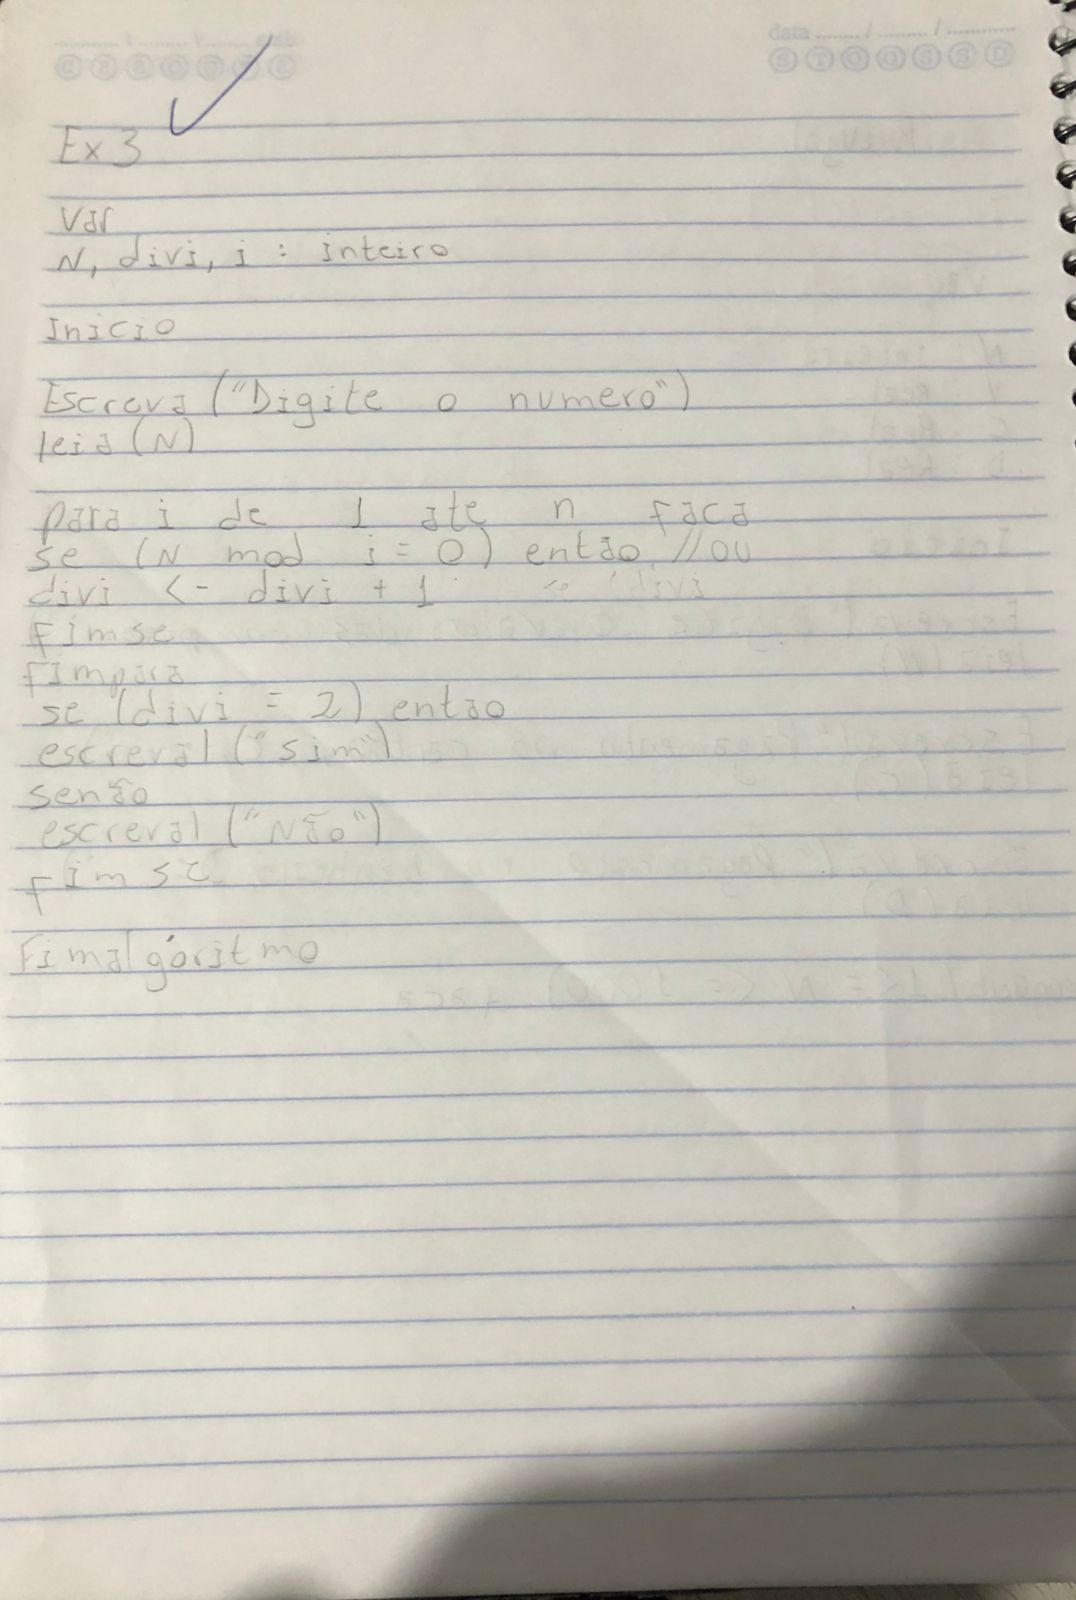 data ....... / ........ / ...........
S T Q Q S S D
Ex 3
Var
N, divi, i : inteiro
Inicio
Escreva ("Digite o numero")
leia (N)
para i de 1 ate n faca
se (N mod i = 0) então //ou
divi <- divi + 1
fimse
fimpara
se (divi = 2) entao
escreval ("sim")
senão
escreval ("Não")
fimse
Fimalgóritmo